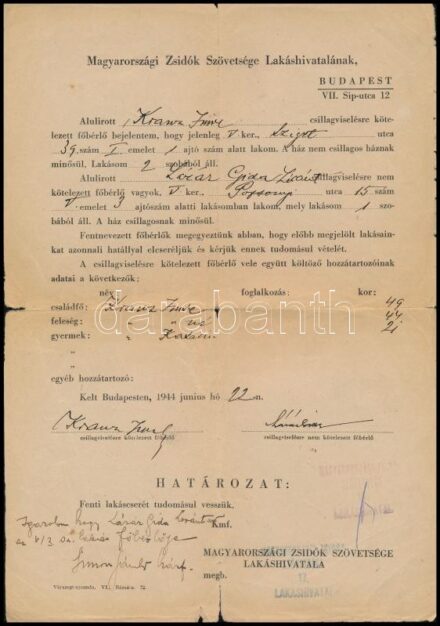 Magyarországi Zsidók Szövetsége Lakáshivatalának,
BUDAPEST
VII. Sip-utca 12
Alulirott Krausz Imre csillagviselésre köte-
lezett főbérlő bejelentem, hogy jelenleg V ker., Sziget utca
39. szám I. emelet 1 ajtó szám alatt lakom. A ház nem csillagos háznak
minősül. Lakásom 2 szobából áll.
Alulirott Lázár Gida Lóránt csillagviselésre nem
kötelezett főbérlő vagyok, V ker. Pozsonyi utca 15 szám
V. emelet 3 ajtószám alatti lakásomban lakom, mely lakásom 1 szo-
bából áll. A ház csillagosnak minősül.
Fentnevezett főbérlők megegyeztünk abban, hogy előbb megjelölt lakásain-
kat azonnali hatállyal elcseréljük és kérjük ennek tudomásul vételét.
A csillagviselésre kötelezett főbérlő vele együtt költöző hozzátartozóinak
adatai a következők:
név foglalkozás: kor:
családfő: Krausz Imre 49
feleség: " " né 44
gyermek: " Katalin 21
"
"
egyéb hozzátartozó:
Kelt Budapesten, 1944 junius hó 22-n.
Krausz Imre
csillagviselésre kötelezett főbérlő csillagviselésre nem kötelezett főbérlő
HATÁROZAT:
Fenti lakáscserét tudomásul vesszük.
Igazolom hogy Lázár Gida Lóránt Kmf.
az V/3 sz. lakás főbérlője
MAGYARORSZÁGI ZSIDÓK SZÖVETSÉGE
LAKÁSHIVATALA
Simon
megb.
darabanth